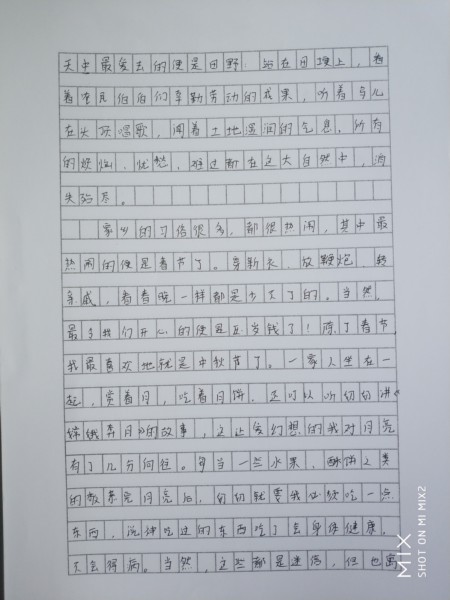 天里最爱去的便是田野。站在田埂上，看
着农民伯伯们辛勤劳动的成果，听着鸟儿
在头顶唱歌，闻着土地湿润的气息，所有
的烦恼、忧愁、难过都在这大自然中，消
失殆尽。
家乡的习俗很多，都很热闹，其中最
热闹的便是春节了。穿新衣、放鞭炮、转
亲戚，看春晚一样都是少不了的。当然，
最令我们开心的便是压岁钱了！除了春节，
我最喜欢地就是中秋节了。一家人坐在一
起，赏着月，吃着月饼，还可以听奶奶讲《
嫦娥奔月》的故事，这让爱幻想的我对月亮
有了几分向往。每当一些水果、酥饼之类
的散亮月亮后，奶奶就要我必须吃一点
东西，说神吃过的东西吃了会身体健康，
不会得病。当然，这些都是迷信，但也寓
MIX
SHOT ON MI MIX2